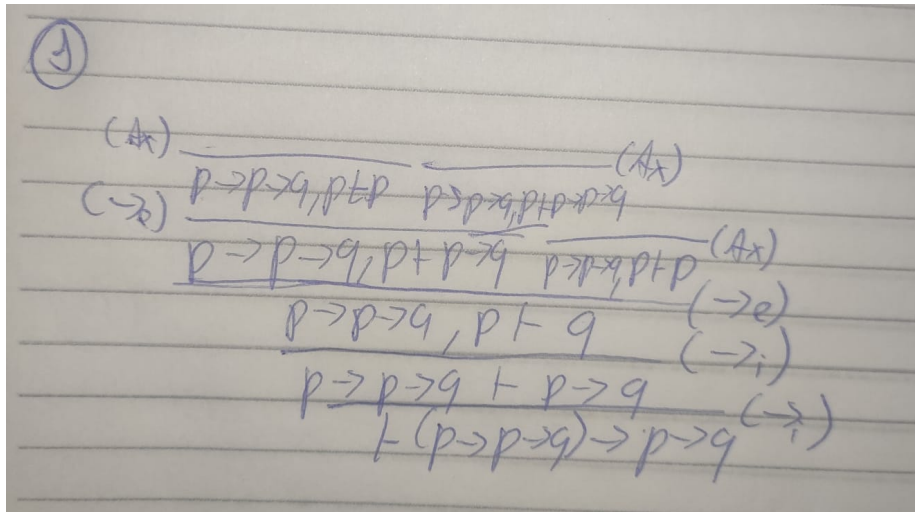 1
(Ax) (Ax)
p→p→q, p ⊢ p p→p→q, p ⊢ p→p→q
(→e) (Ax)
p→p→q, p ⊢ p→q p→p→q, p ⊢ p
(→e)
p→p→q, p ⊢ q
(→i)
p→p→q ⊢ p→q
(→i)
⊢ (p→p→q)→p→q